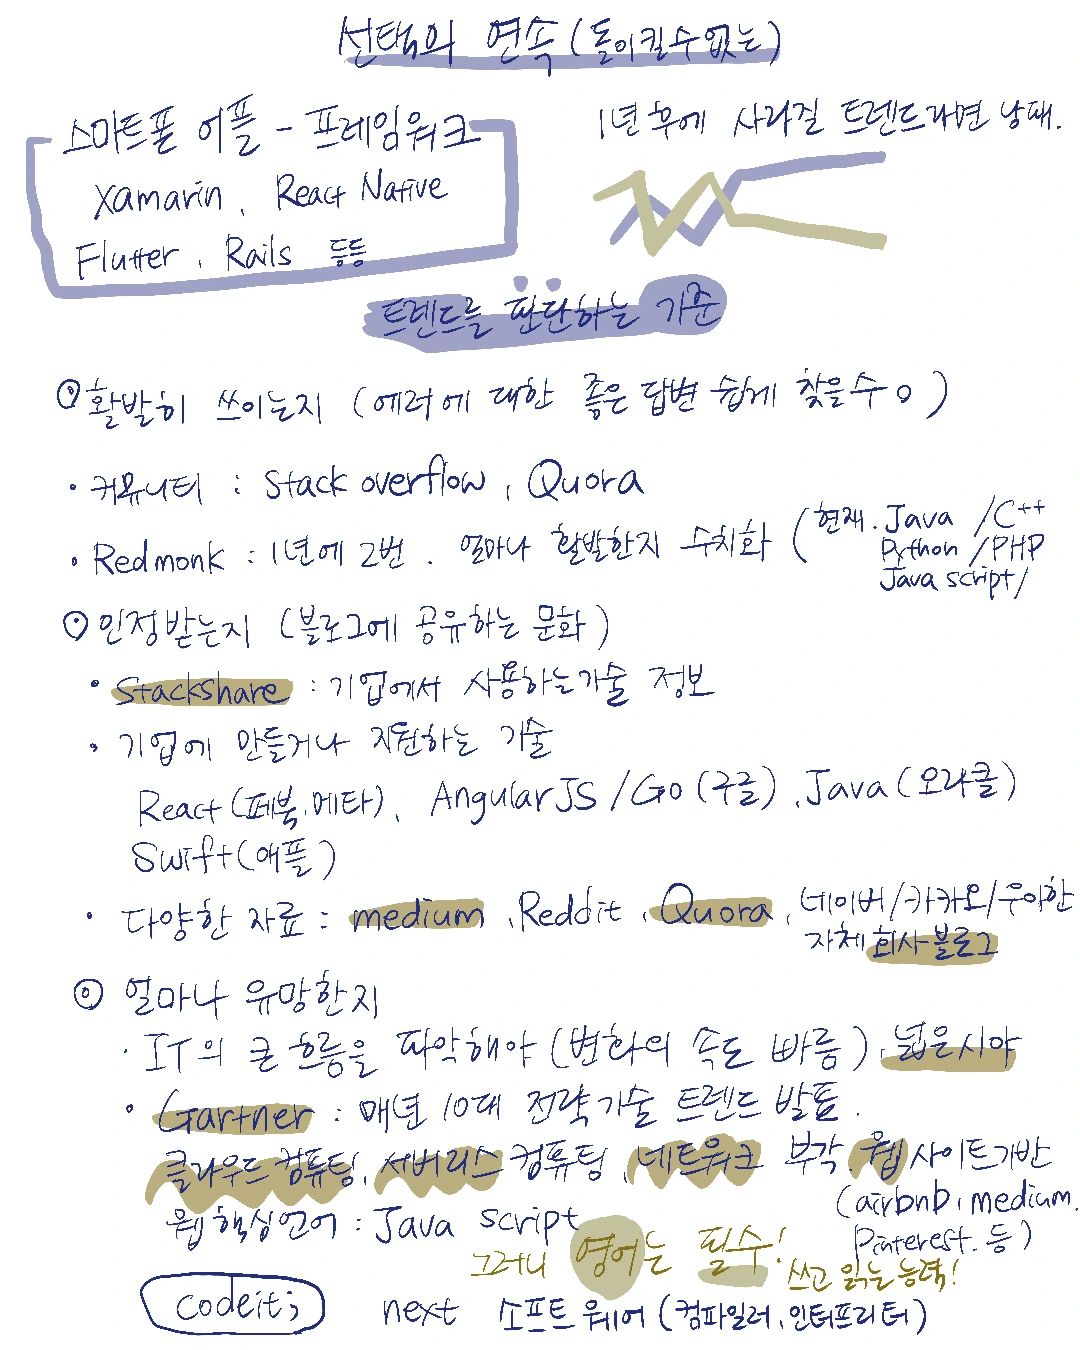 선택의 연속 (돌이킬수없는)
스마트폰 어플 - 프레임워크
Xamarin, React Native
Flutter, Rails 등등
1년후에 사라질 트렌드라면 낭패.
트렌드를 판단하는 기준
활발히 쓰이는지 (에러에 대한 좋은 답변 쉽게 찾을수 o)
• 커뮤니티 : Stack overflow, Quora
• Redmonk : 1년에 2번. 얼마나 활발한지 수치화 (현재. Java / C++
Python / PHP
Java script /
인정받는지 (블로그에 공유하는 문화)
• Stackshare : 기업에서 사용하는기술 정보
• 기업에 만들거나 지원하는 기술
React (페북, 메타), AngularJS / Go (구글), Java (오라클)
Swift (애플)
• 다양한 자료 : medium, Reddit, Quora, 네이버/카카오/우아한
자체 회사블로그
얼마나 유망한지
• IT의 큰 흐름을 파악해야 (변화의 속도 빠름), 넓은시야
• Gartner : 매년 10대 전략기술 트렌드 발표.
클라우드 컴퓨팅, 서버리스 컴퓨팅, 네트워크 부각, 웹사이트기반
(airbnb, medium,
Pinterest. 등)
웹 핵심언어 : Java script
그러니 영어는 필수!
쓰고 읽는 능력!
codeit;
next 소프트웨어 (컴파일러, 인터프리터)